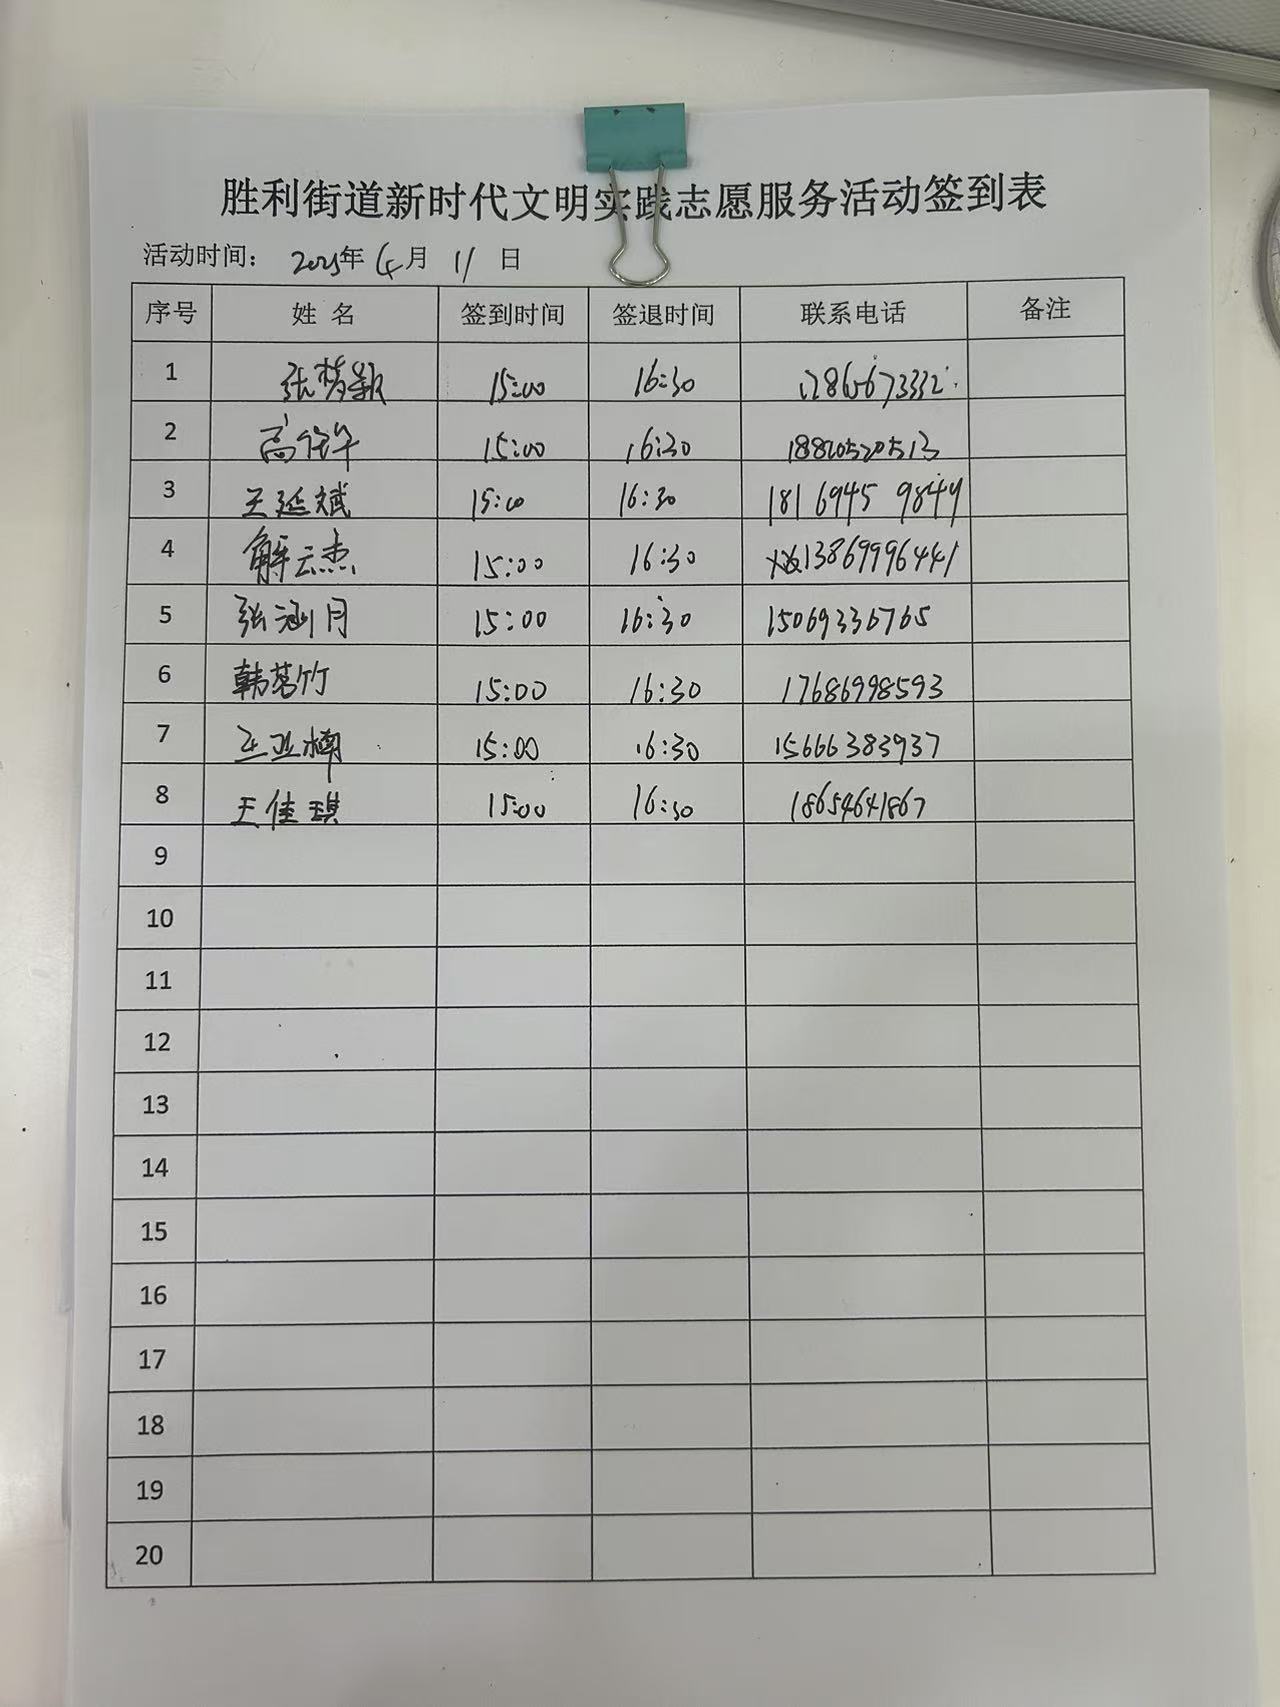 胜利街道新时代文明实践志愿服务活动签到表
活动时间： 2025年 4月 11日
序号 姓 名 签到时间 签退时间 联系电话 备注
1 15:00 16:30
2 15:00 16:30 18820520513
3 王延斌 15:00 16:30 1816945 9844
4 解云杰 15:00 16:30 13869996441
5 张涵月 15:00 16:30 15069336765
6 韩茗竹 15:00 16:30 17686998593
7 王亚楠 15:00 16:30 15666383937
8 王佳琪 15:00 16:30 18654641867
9
10
11
12
13
14
15
16
17
18
19
20